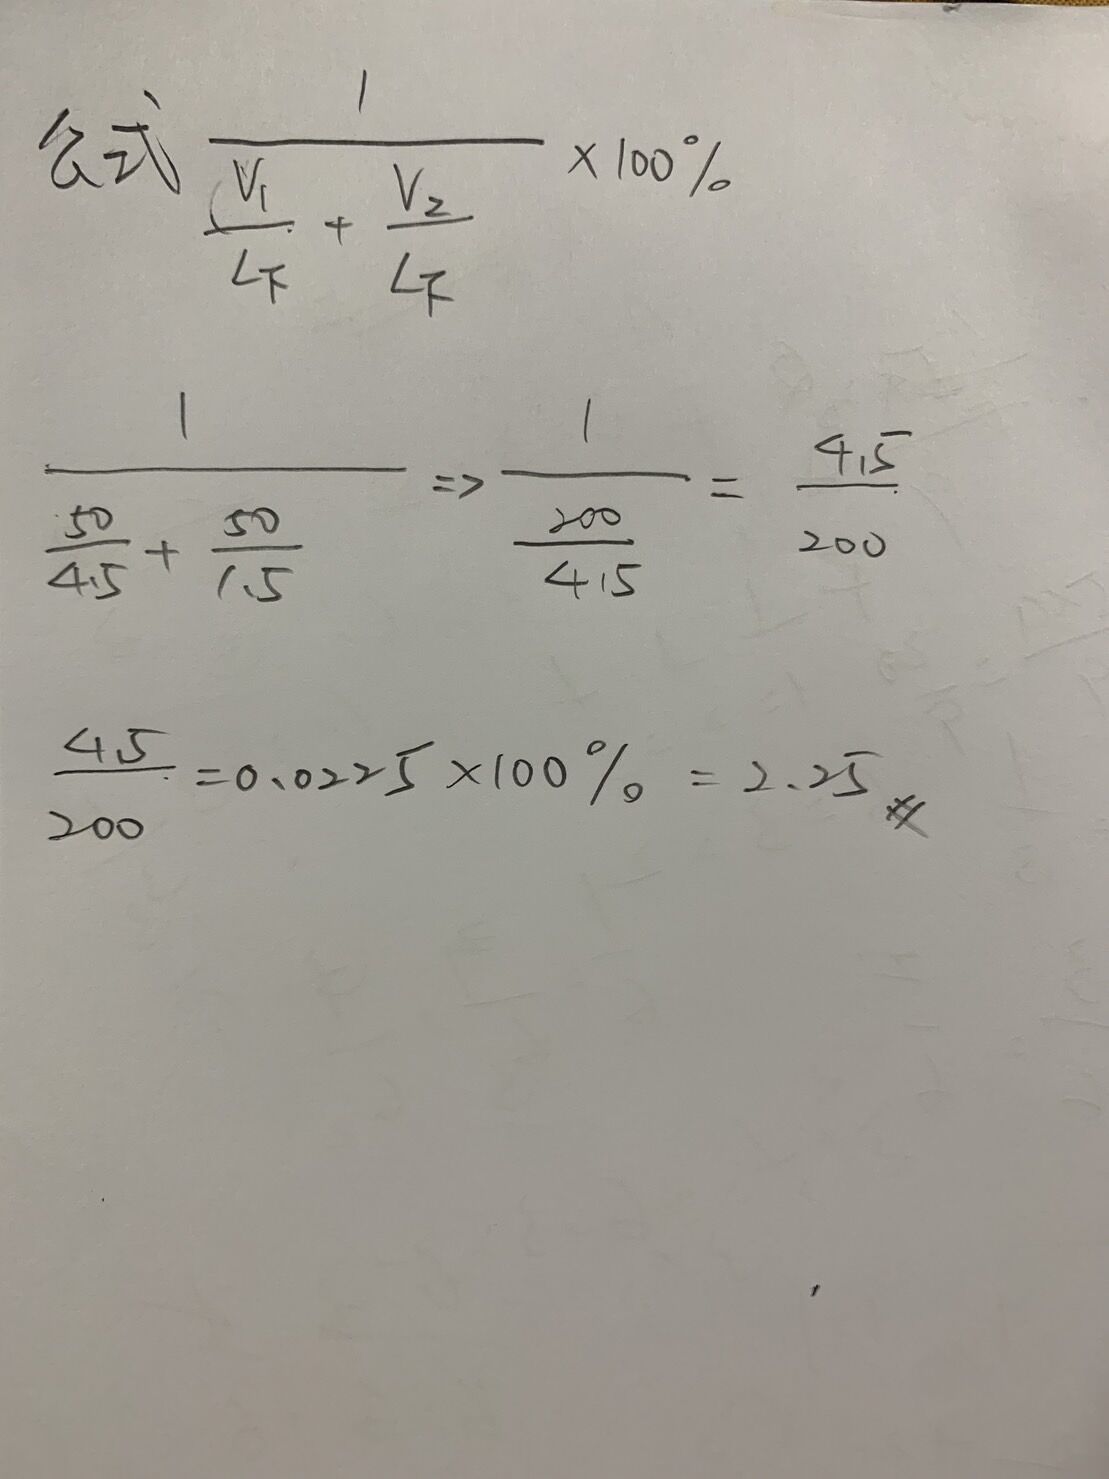 公式 1/(V₁/LF + V₂/LF) ×100%
1/(50/4.5 + 50/1.5) => 1/(200/4.5) = 4.5/200
4.5/200 = 0.0225 ×100% = 2.25 #